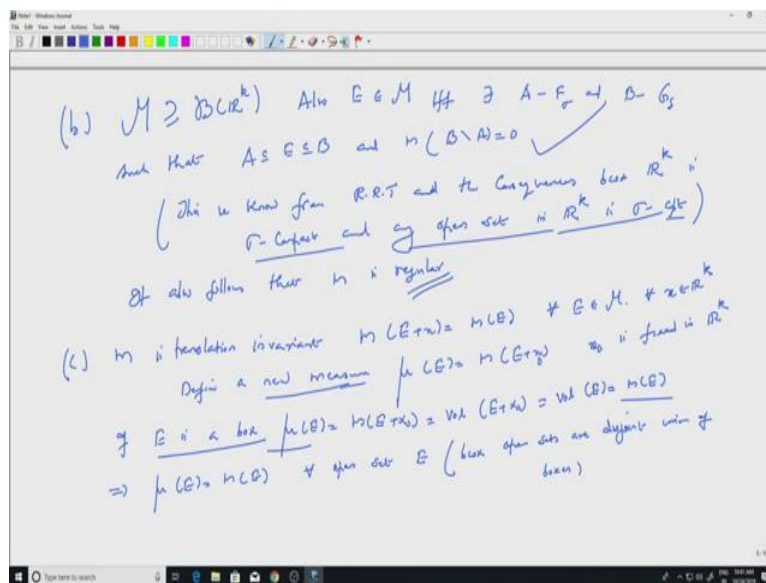 Note1 - Windows Journal
File Edit View Insert Actions Tools Help
(b) M ⊇ B(ℝ^k) Also E ∈ M iff ∃ A - F_σ and B - G_δ
such that A ⊆ E ⊆ B and m(B \ A) = 0
(This we know from R.R.T and the Consequences because ℝ^k is
σ-compact and any open set in ℝ^k is σ-cpt)
It also follows that m is regular
(c) m is translation invariant m(E+x) = m(E) ∀ E ∈ M. ∀ x ∈ ℝ^k
Define a new measure μ(E) = m(E+x_0) x_0 is fixed in ℝ^k
If E is a box μ(E) = m(E+x_0) = vol(E+x_0) = vol(E) = m(E)
⇒ μ(E) = m(E) ∀ open set E (bcox open sets are disjoint union of
boxes)
Type here to search